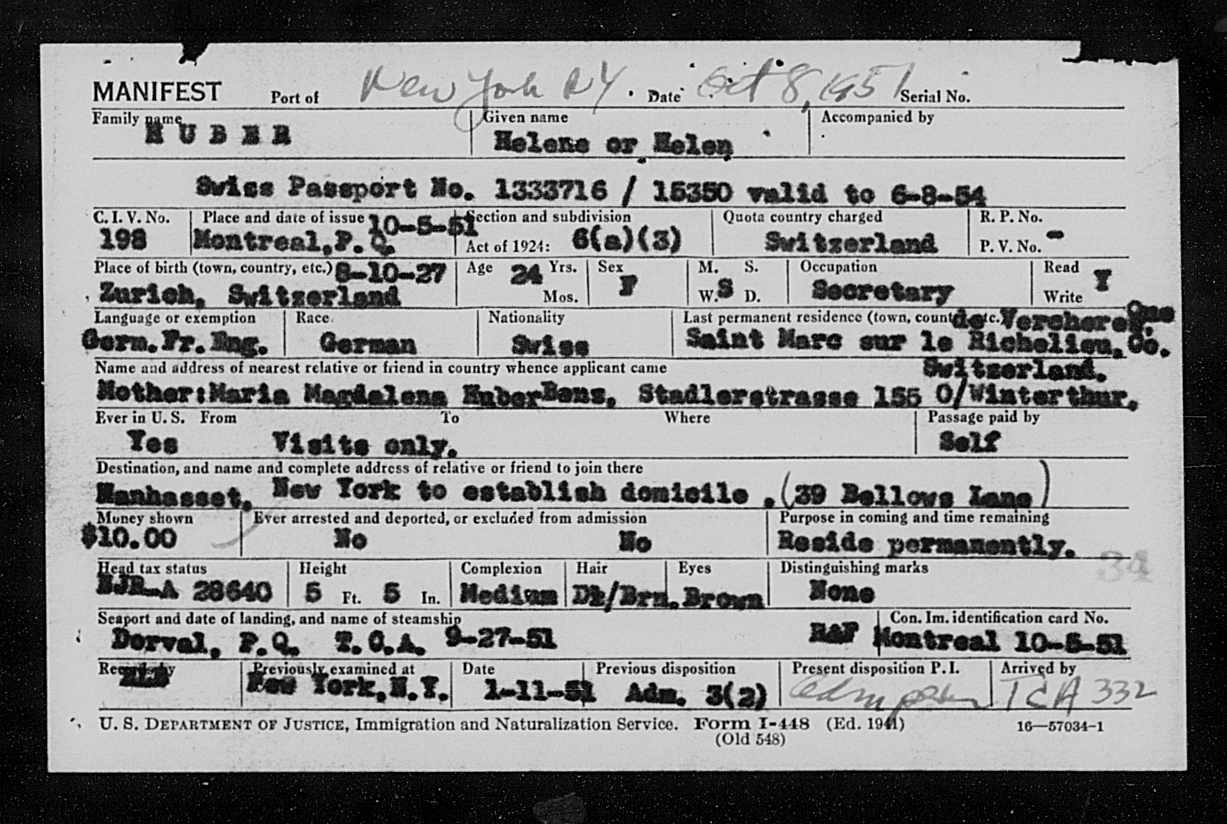 MANIFEST Port of New York NY. Date Oct 8, 1951 Serial No.
Family name Given name Accompanied by
HUBER Helene or Helen
Swiss Passport No. 1333716 / 15350 valid to 6-8-54
C. I. V. No. Place and date of issue 10-5-51 Section and subdivision Quota country charged R. P. No.
198 Montreal, P. Q. Act of 1924: 6(a)(3) Switzerland P. V. No. -
Place of birth (town, country, etc.) 8-10-27 Age 24 Yrs. Sex M. S. Occupation Read
Zurich, Switzerland Mos. F W. S D. Secretary Write Y
Language or exemption Race Nationality Last permanent residence (town, count etc. de Vercheres, Que
Germ. Fr. Eng. German Swiss Saint Marc sur le Richelieu, Co.
Name and address of nearest relative or friend in country whence applicant came Switzerland.
Mother: Maria Magdalena Huber Bens, Stadlerstrasse 155 O/Winterthur,
Ever in U. S. From To Where Passage paid by
Yes Visits only. Self
Destination, and name and complete address of relative or friend to join there
Manhasset, New York to establish domicile . (39 Bellows Lane)
Money shown Ever arrested and deported, or excluded from admission Purpose in coming and time remaining
$10.00 No No Reside permanently.
34
Head tax status Height Complexion Hair Eyes Distinguishing marks
NJR-A 28640 5 Ft. 5 In. Medium Dk/Brn. Brown None
Seaport and date of landing, and name of steamship Con. Im. identification card No.
Dorval, P. Q. T.C.A. 9-27-51 R&F Montreal 10-5-51
Previously examined at Date Previous disposition Present disposition P. I. Arrived by
New York, N.Y. 1-11-51 Adm. 3(2) TCA 332
U. S. DEPARTMENT OF JUSTICE, Immigration and Naturalization Service. Form I-448 (Ed. 1941) 16—57034-1
(Old 548)